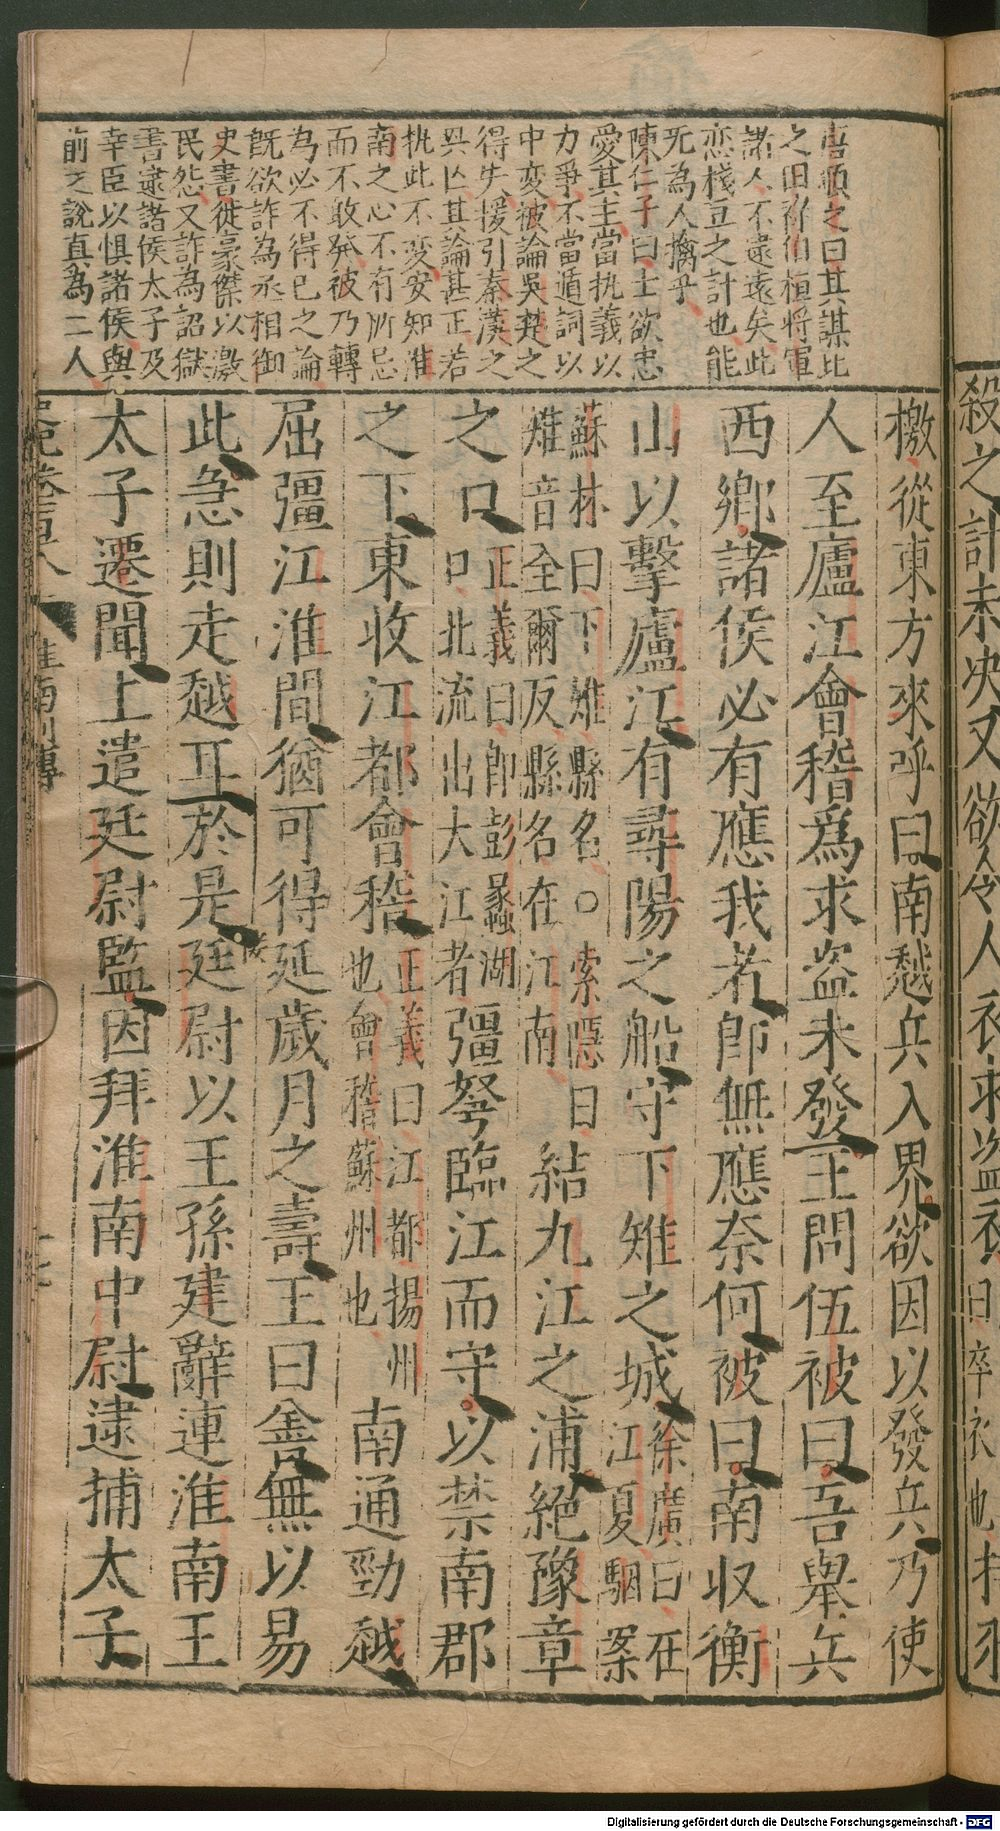 唐順之曰其謀比
之田祿伯桓將軍
諸人不逮遠矣此
恋棧豆之計也能
死為人擒乎
陳仁子曰士欲忠
愛其主當执義以
力爭不當遁詞以
中变被論吳楚之
得失援引秦漢之
興亾其論甚正若
执此不变安知淮
南之心不有所忌
而不敢発彼乃轉
為必不得已之論
既欲詐為丞相御
史書徙豪傑以激
民怨又詐為詔獄
書逮諸侯太子及
幸臣以惧諸侯與
前之說直為二人
檄從東方來呼曰南越兵入界欲因以發兵乃使
人至廬江會稽爲求盗未發王問伍被曰吾舉兵
西鄉諸侯必有應我者即無應奈何被曰南收衡
山以擊廬江有尋陽之船守下雉之城徐廣曰在江夏駰案
蘇林曰下雉縣名○索隱曰雉音全爾反縣名在江南結九江之浦絕豫章
之口正義曰即彭蠡湖口北流出大江者彊弩臨江而守以禁南郡
之下東收江都會稽正義曰江都揚州也會稽蘇州也南通勁越
屈彊江淮間猶可得延歲月之壽王曰善無以易
此急則走越耳於是廷尉以王孫建辭連淮南王
太子遷聞上遣廷尉監因拜淮南中尉逮捕太子
淮南列傳
殺之計未決又欲令人衣求盗衣
曰卒衣也持羽
Digitalisierung gefördert durch die Deutsche Forschungsgemeinschaft - DFG